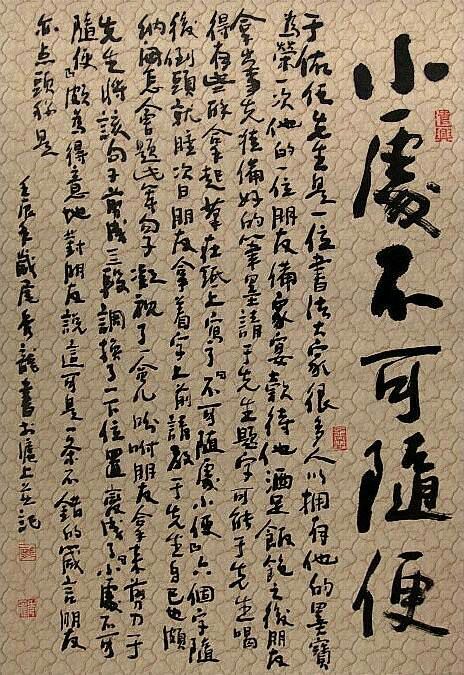 小處不可隨便
于佑任先生是一位書法大家很多人以擁有他的墨寶
為榮一次他的一位朋友備家宴款待他酒足飯飽之後朋友
拿出事先准備好的筆墨請于先生題字可能于先生喝
得有些醉拿起筆在紙上寫了「不可隨處小便」六個字隨
後倒頭就睡次日朋友拿着字上前請教于先生自己也頗
納悶怎會題此等句子凝視了一會儿吩咐朋友拿来剪刀于
先生將該句子剪成三段調換了一下位置變成了「小處不可
隨便」頗為得意地對朋友說這可是一条不錯的箴言朋友
亦点頭称是
壬辰年歲尾秀龍書於滬上並記